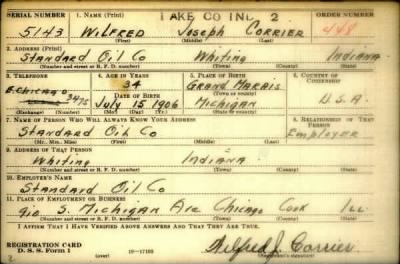 SERIAL NUMBER 1. NAME (Print) LAKE CO IND. 2 ORDER NUMBER
5143 WILFRED JOSEPH CORRIER 448
(First) (Middle) (Last)
2. ADDRESS (Print)
STANDARD OIL CO WHITING INDIANA
(Number and street or R. F. D. number) (Town) (County) (State)
3. TELEPHONE 4. AGE IN YEARS 5. PLACE OF BIRTH 6. COUNTRY OF CITIZENSHIP
E. CHICAGO 34 GRAND MARAIS
DATE OF BIRTH (Town or county)
3475 JULY 15 1906 MICHIGAN U.S.A.
(Exchange) (Number) (Mo.) (Day) (Yr.) (State or country)
7. NAME OF PERSON WHO WILL ALWAYS KNOW YOUR ADDRESS 8. RELATIONSHIP OF THAT PERSON
STANDARD OIL CO EMPLOYER
(Mr., Mrs., Miss) (First) (Middle) (Last)
9. ADDRESS OF THAT PERSON
WHITING INDIANA
(Number and street or R. F. D. number) (Town) (County) (State)
10. EMPLOYER'S NAME
STANDARD OIL CO
11. PLACE OF EMPLOYMENT OR BUSINESS
910 S. MICHIGAN AVE CHICAGO COOK ILL
(Number and street or R. F. D. number) (Town) (County) (State)
I AFFIRM THAT I HAVE VERIFIED ABOVE ANSWERS AND THAT THEY ARE TRUE.
REGISTRATION CARD
D. S. S. Form 1 16—17105 Wilfred J. Corrier